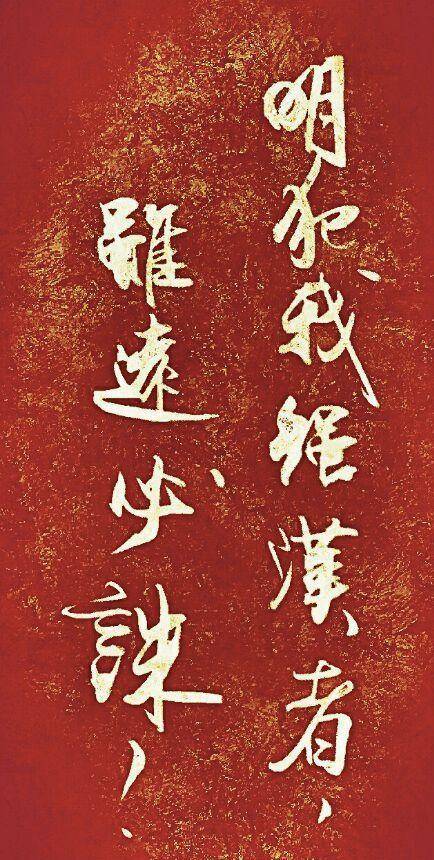 明犯我強漢者，
雖遠必誅！